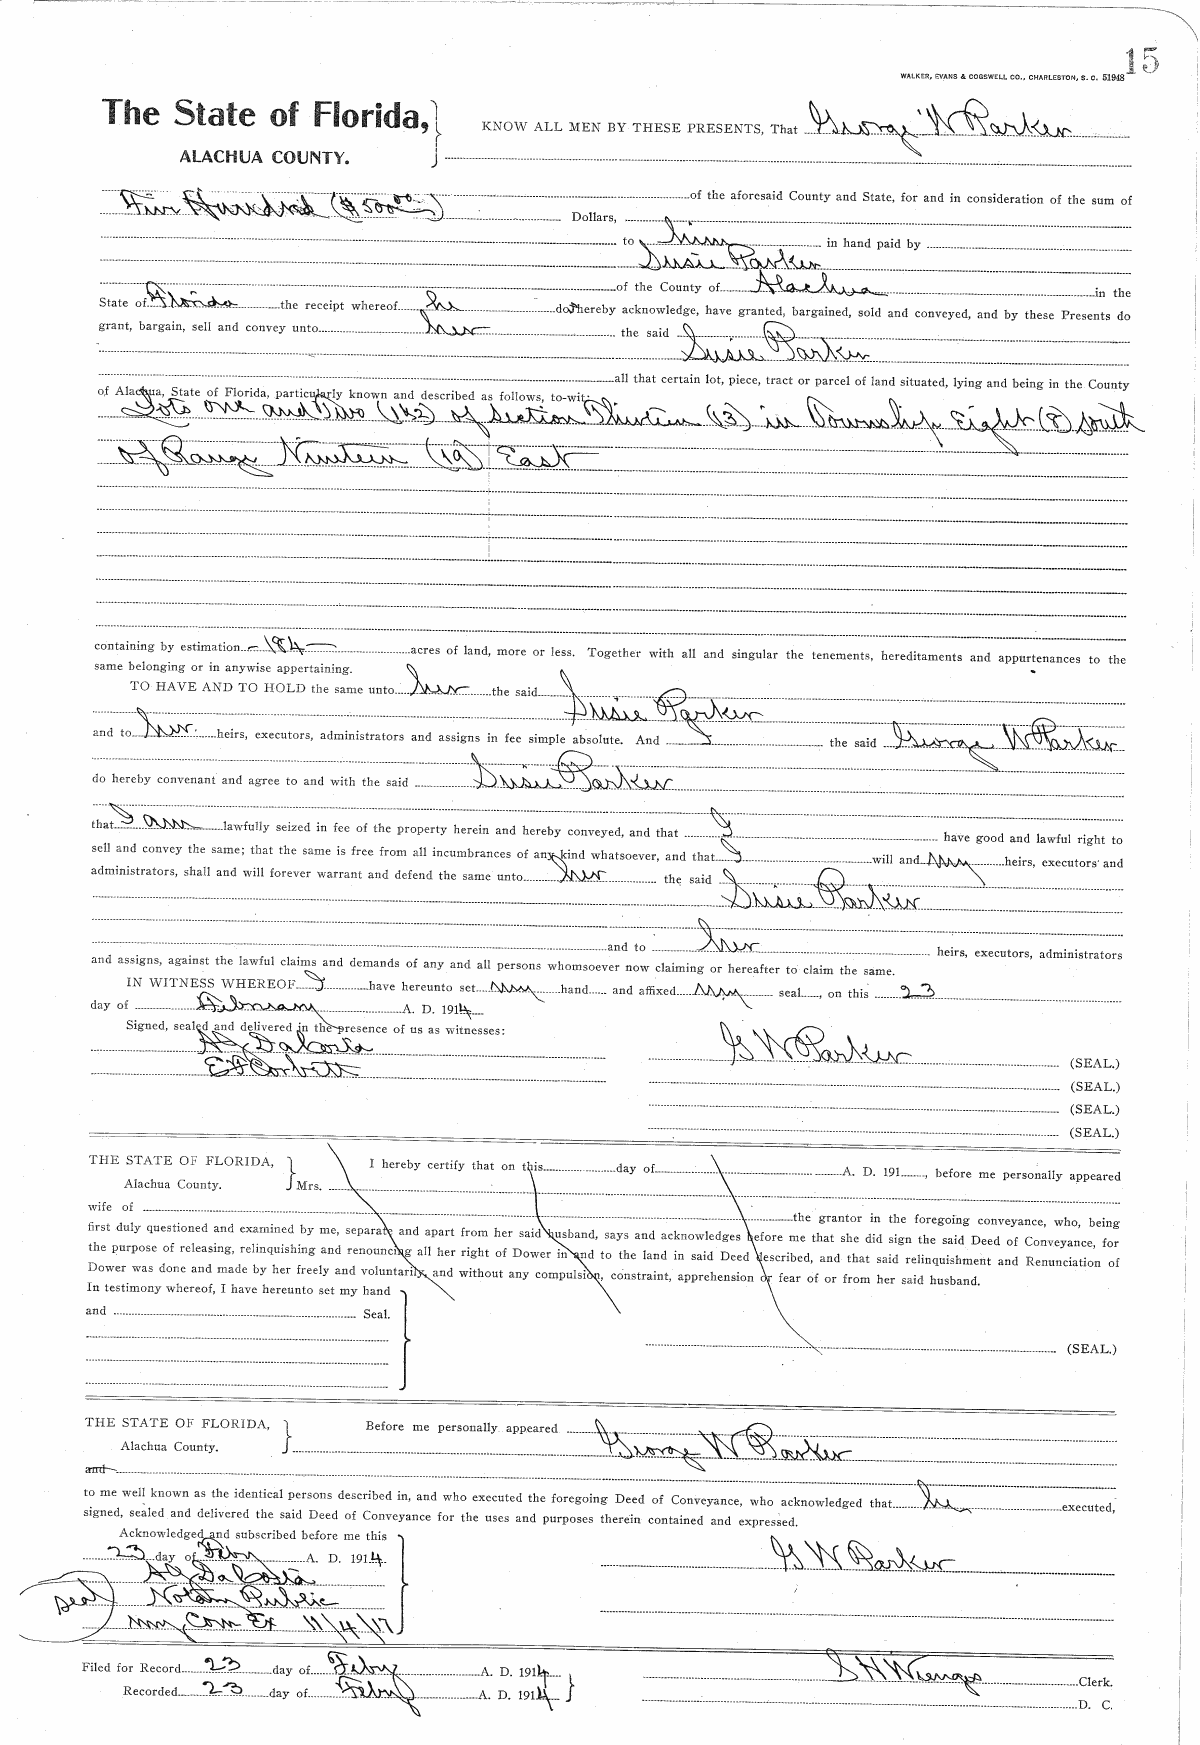 15
WALKER, EVANS & COGSWELL CO., CHARLESTON, S. C. 51948
The State of Florida,
KNOW ALL MEN BY THESE PRESENTS, That George W Parker
ALACHUA COUNTY.
of the aforesaid County and State, for and in consideration of the sum of
Five Hundred ($500.00) Dollars,
to him in hand paid by
Susie Parker
of the County of Alachua in the
State of Florida the receipt whereof he do hereby acknowledge, have granted, bargained, sold and conveyed, and by these Presents do
grant, bargain, sell and convey unto her the said
Susie Parker
all that certain lot, piece, tract or parcel of land situated, lying and being in the County
of Alachua, State of Florida, particularly known and described as follows, to-wit:
Lots one and Two (1&2) of Section Thirteen (13) in Township Eight (8) south
of Range Nineteen (19) East
containing by estimation -184- acres of land, more or less. Together with all and singular the tenements, hereditaments and appurtenances to the
same belonging or in anywise appertaining.
TO HAVE AND TO HOLD the same unto her the said
Susie Parker
and to her heirs, executors, administrators and assigns in fee simple absolute. And I the said George W Parker
do hereby convenant and agree to and with the said Susie Parker
that I am lawfully seized in fee of the property herein and hereby conveyed, and that I have good and lawful right to
sell and convey the same; that the same is free from all incumbrances of any kind whatsoever, and that I will and my heirs, executors and
administrators, shall and will forever warrant and defend the same unto her the said
Susie Parker
and to her heirs, executors, administrators
and assigns, against the lawful claims and demands of any and all persons whomsoever now claiming or hereafter to claim the same.
IN WITNESS WHEREOF I have hereunto set my hand and affixed my seal, on this 23
day of February A. D. 1914
Signed, sealed and delivered in the presence of us as witnesses:
DaCosta
G W Parker (SEAL.)
Corbett
(SEAL.)
(SEAL.)
(SEAL.)
THE STATE OF FLORIDA,
I hereby certify that on this day of A. D. 191 , before me personally appeared
Alachua County.
Mrs.
wife of the grantor in the foregoing conveyance, who, being
first duly questioned and examined by me, separate and apart from her said husband, says and acknowledges before me that she did sign the said Deed of Conveyance, for
the purpose of releasing, relinquishing and renouncing all her right of Dower in and to the land in said Deed described, and that said relinquishment and Renunciation of
Dower was done and made by her freely and voluntarily, and without any compulsion, constraint, apprehension or fear of or from her said husband.
In testimony whereof, I have hereunto set my hand
and Seal.
(SEAL.)
THE STATE OF FLORIDA,
Before me personally appeared
Alachua County.
George W Parker
and
to me well known as the identical persons described in, and who executed the foregoing Deed of Conveyance, who acknowledged that he executed,
signed, sealed and delivered the said Deed of Conveyance for the uses and purposes therein contained and expressed.
Acknowledged and subscribed before me this
23 day of Feby A. D. 1914
G W Parker
DaCosta
seal
Notary Public
my Com Ex 11/4/17
Filed for Record 23 day of Feby A. D. 1914
S H Wienges Clerk.
Recorded 23 day of Feby A. D. 1914
D. C.